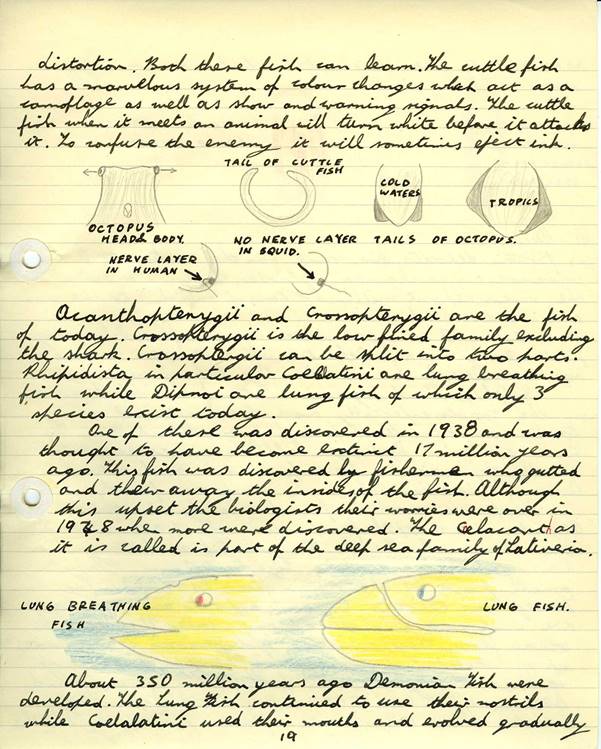 distortion. Both these fish can learn. The cuttle fish
has a marvellous system of colour changes which act as a
camoflage as well as show and warning signals. The cuttle
fish when it meets an animal will turn white before it attacks
it. To confuse the enemy it will sometimes eject ink.
TAIL OF CUTTLE
FISH
COLD
WATERS
TROPICS
OCTOPUS
HEAD & BODY.
NO NERVE LAYER
IN SQUID.
TAILS OF OCTOPUS.
NERVE LAYER
IN HUMAN
Acanthopterygii and Crossopterygii are the fish
of today. Crossopterygii is the low fined family excluding
the shark. Crossoptergii can be split into two parts.
Rhipidista in particular Coelatini are lung breathing
fish while Dipnoi are lung fish of which only 3
species exist today.
One of these was discovered in 1938 and was
thought to have become extinct 17 million years
ago. This fish was discovered by fishermen who gutted
and threw away the insides of the fish. Although
this upset the biologists their worries were over in
1948 when more were discovered. The Coelacant as
it is called is part of the deep sea family of Lativeria.
LUNG BREATHING
FISH
LUNG FISH.
About 350 million years ago Demonian Fish were
developed. The Lung Fish continued to use their nostrils
while Coelalatini used their mouths and evolved gradually
19